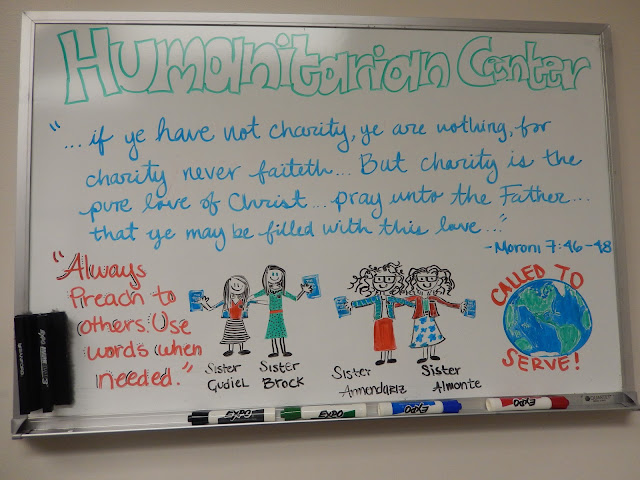 Humanitarian Center
"... if ye have not charity, ye are nothing, for
charity never faileth... But charity is the
pure love of Christ... pray unto the Father...
that ye may be filled with this love..."
-Moroni 7:46-48
"Always
Preach to
others. Use
words when
needed."
Sister
Gudiel
Sister
Brock
Sister
Armendariz
Sister
Almonte
CALLED TO
SERVE!
EXPO
EXPO
EXPO
EXPO